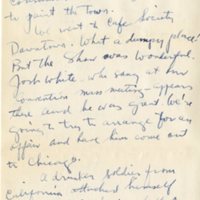 to paint the town.
We went to Cafe Society
Downtown. What a dumpy place!
But the show was wonderful.
Josh White, who sang at our
convention mass meeting appears
there and he was great. We're
going to try to arrange for an
affair and have him come out
to Chicago.
A drunken soldier from
California attached himself